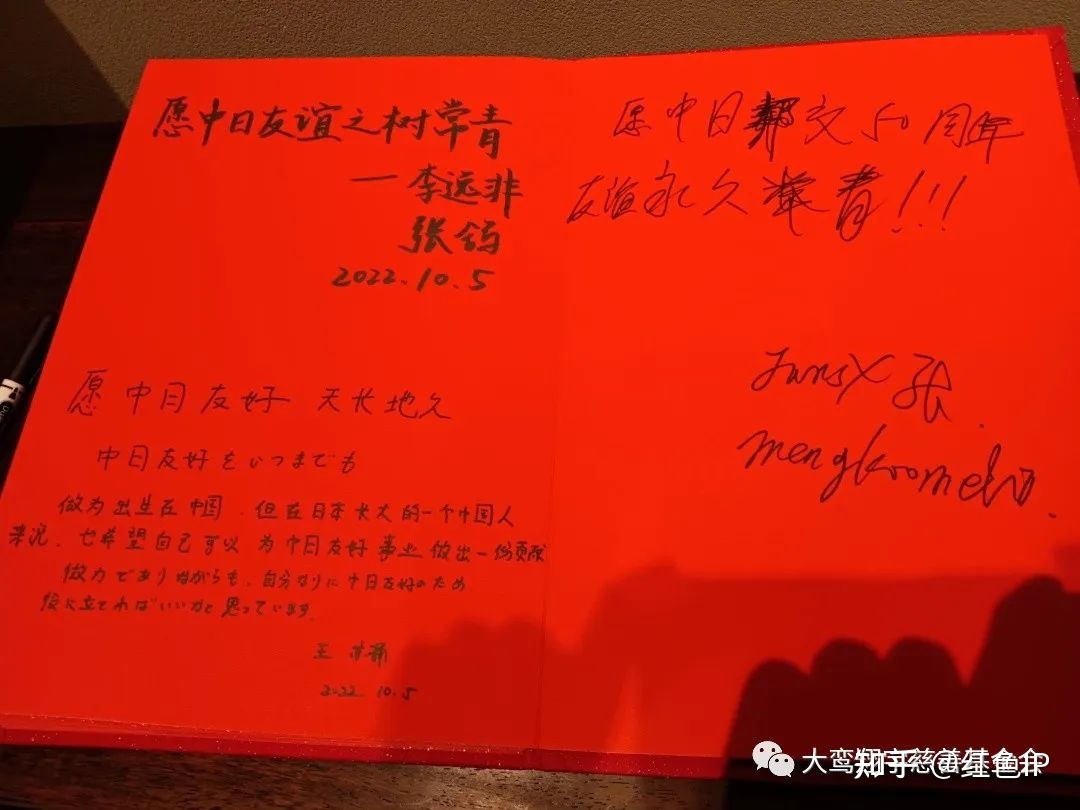 愿中日友谊之树常青
一李远非
张钨
2022.10.5
愿中日友好 天长地久
中日友好をいつまでも
做为出生在中国.但在日本长大的一个中国人
来说.也希望自己可以为中日友好事业做出一份贡献
微力でありながらも、自分なりに中日友好のため
役に立てればいいかと思っています。
王
2022.10.5
愿中日邦交50周年
友谊永久常青!!!
张
大鸾翔宇慈善基金会
知乎 @红色IP